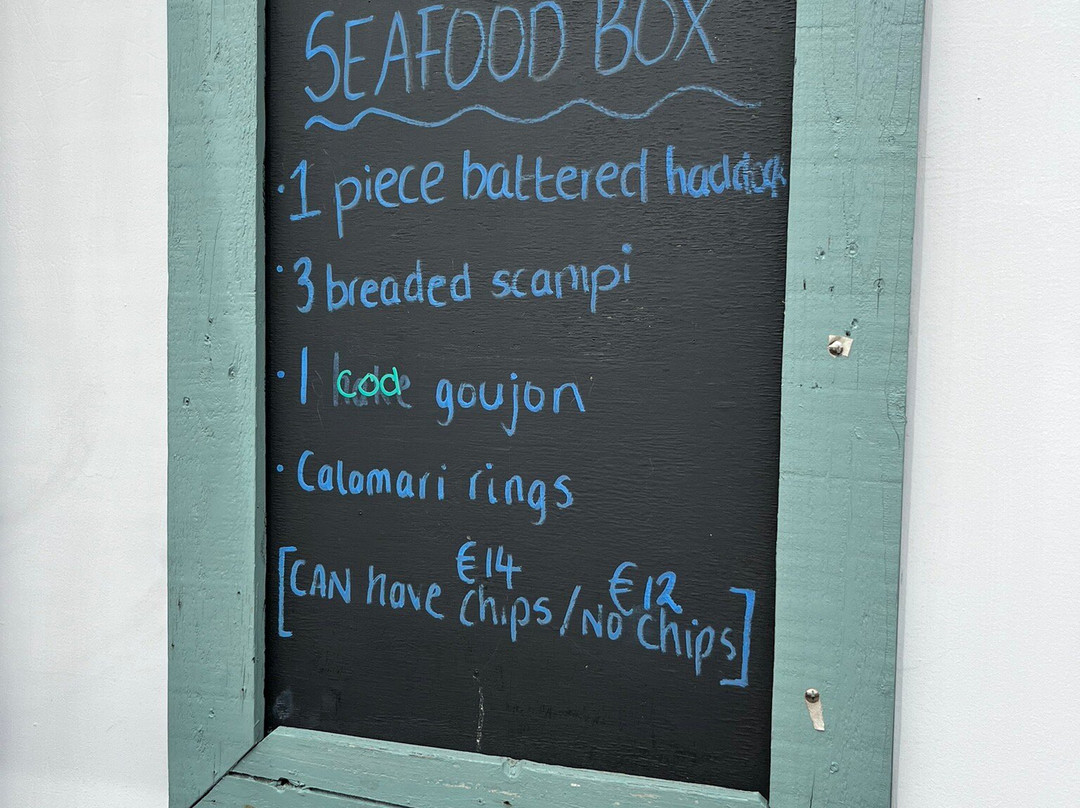 SEAFOOD BOX
· 1 piece battered haddock
· 3 breaded scampi
· 1 cod goujon
· Calamari rings
€14 €12
[CAN have chips / NO chips]